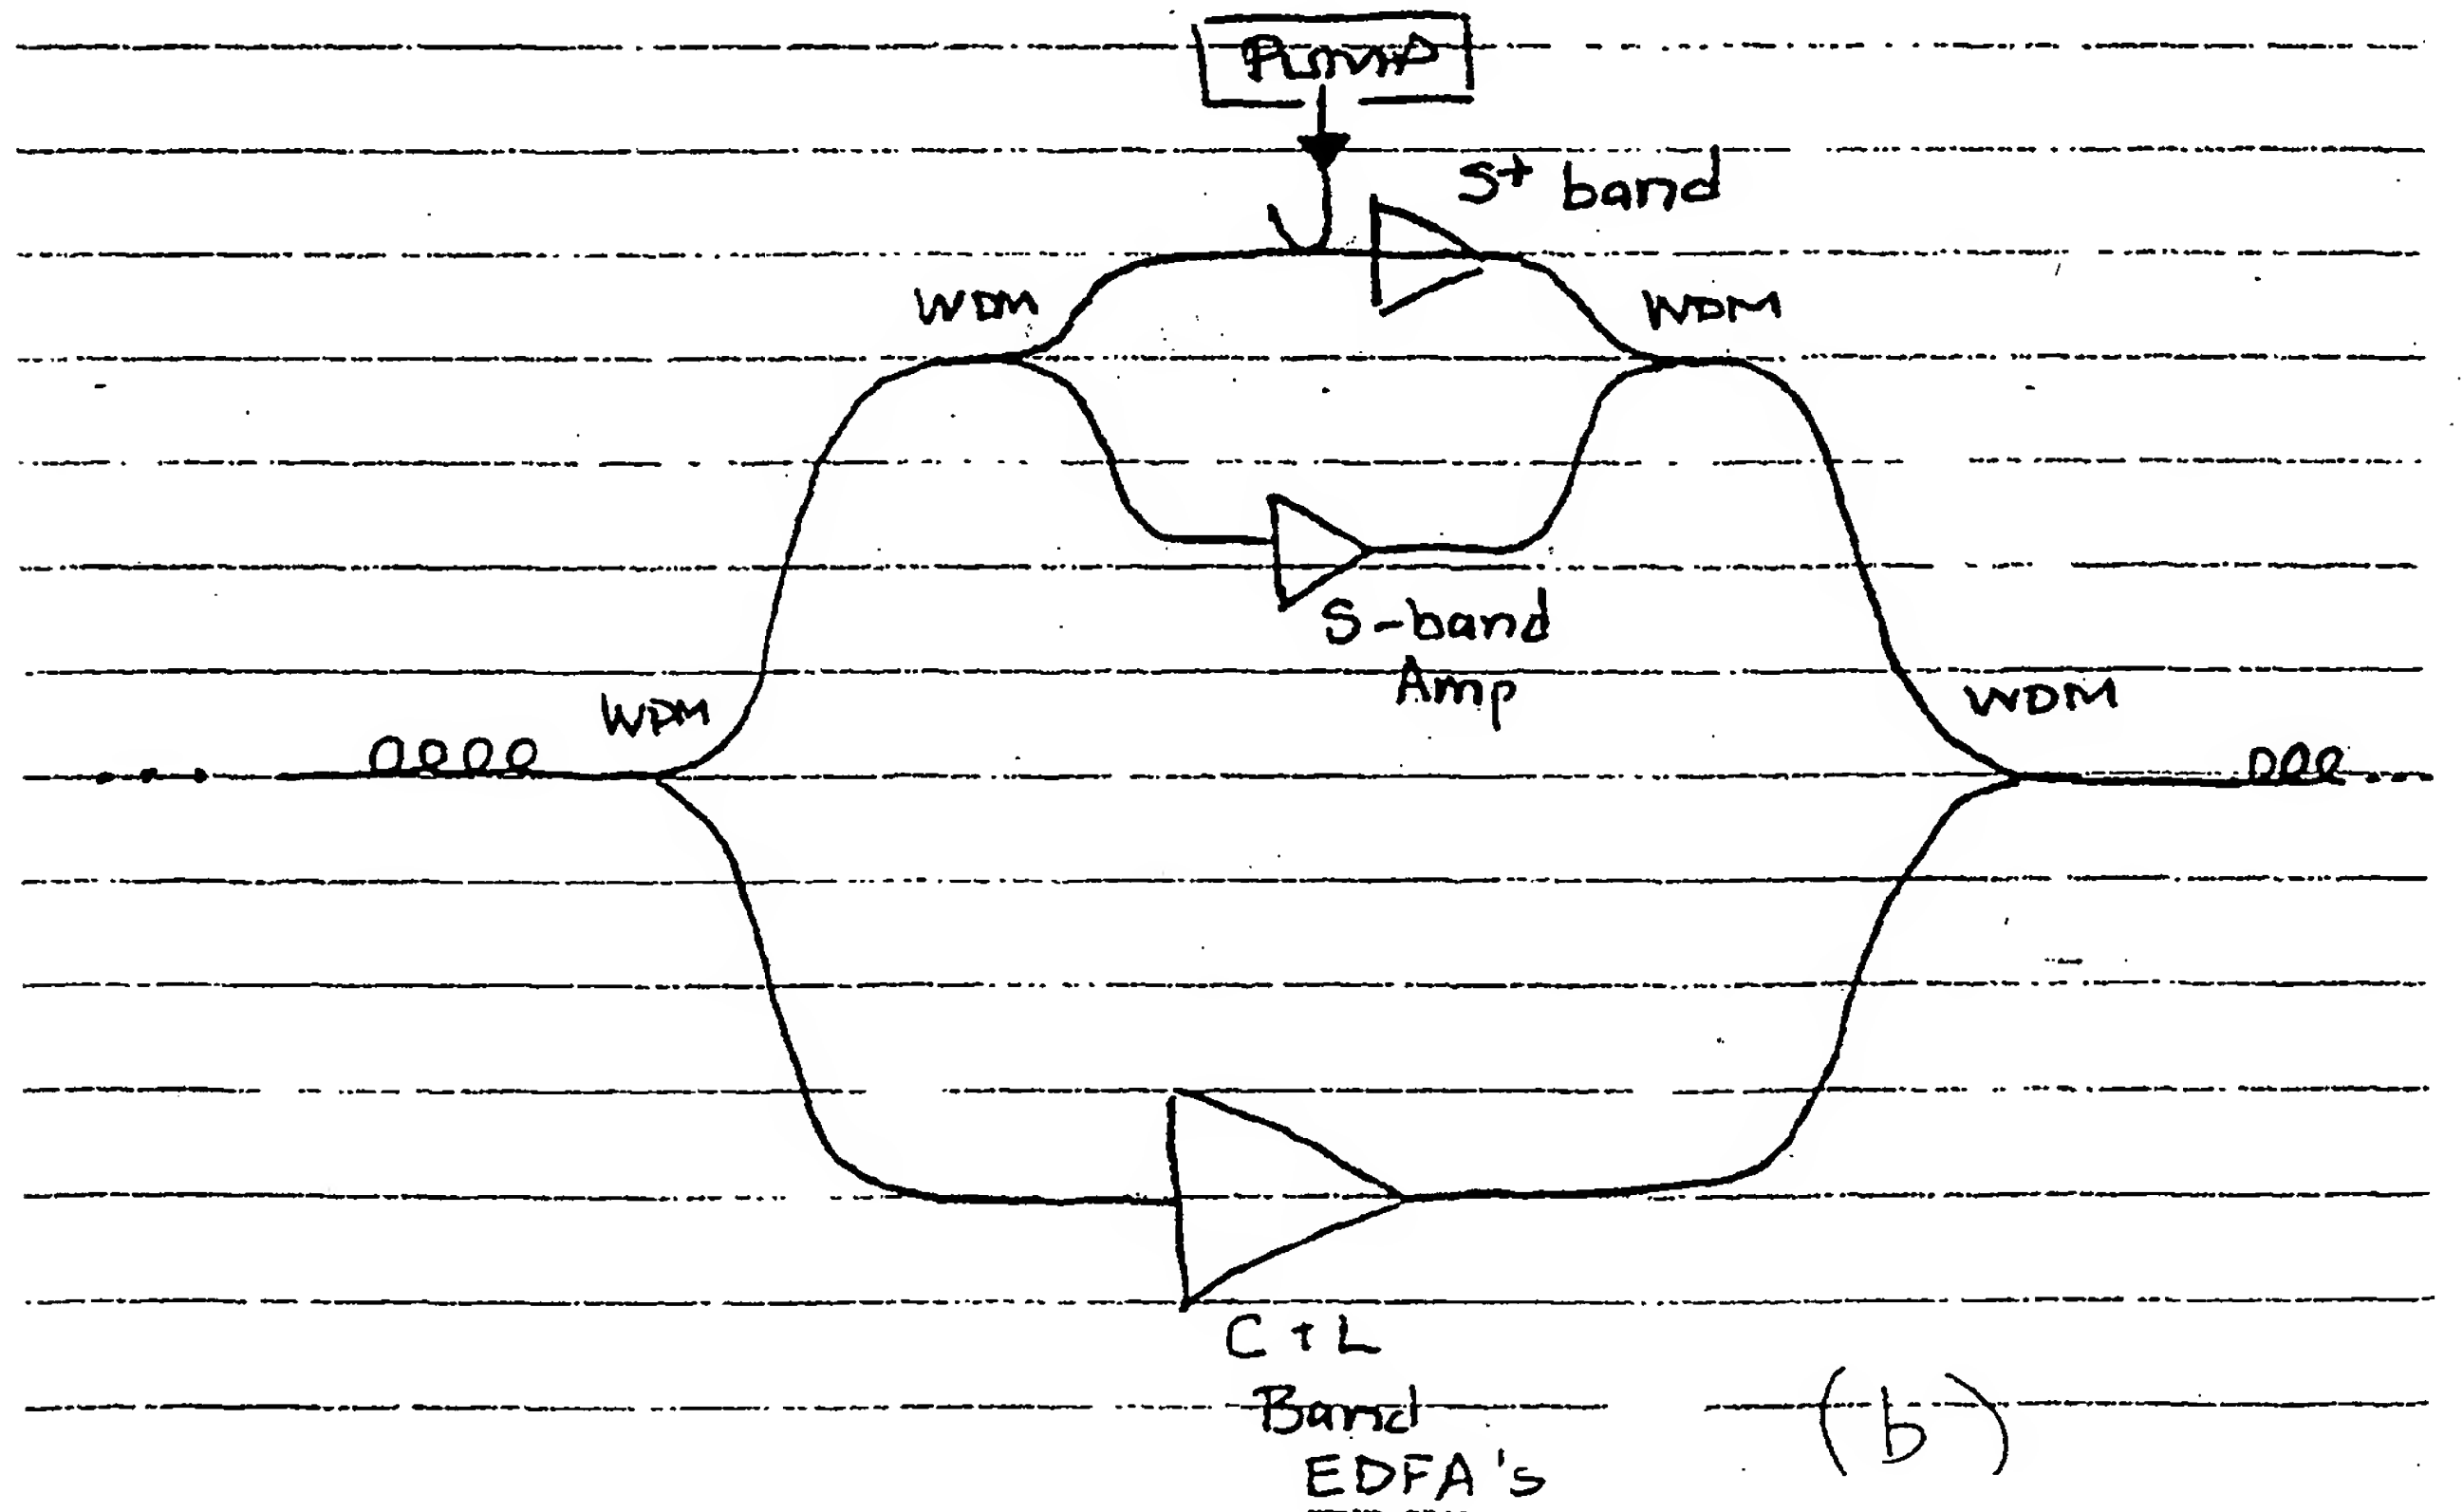 PUMP
S+ band
WDM
WDM
S-band
Amp
WDM
WDM
C + L
Band
EDFA's
(b)